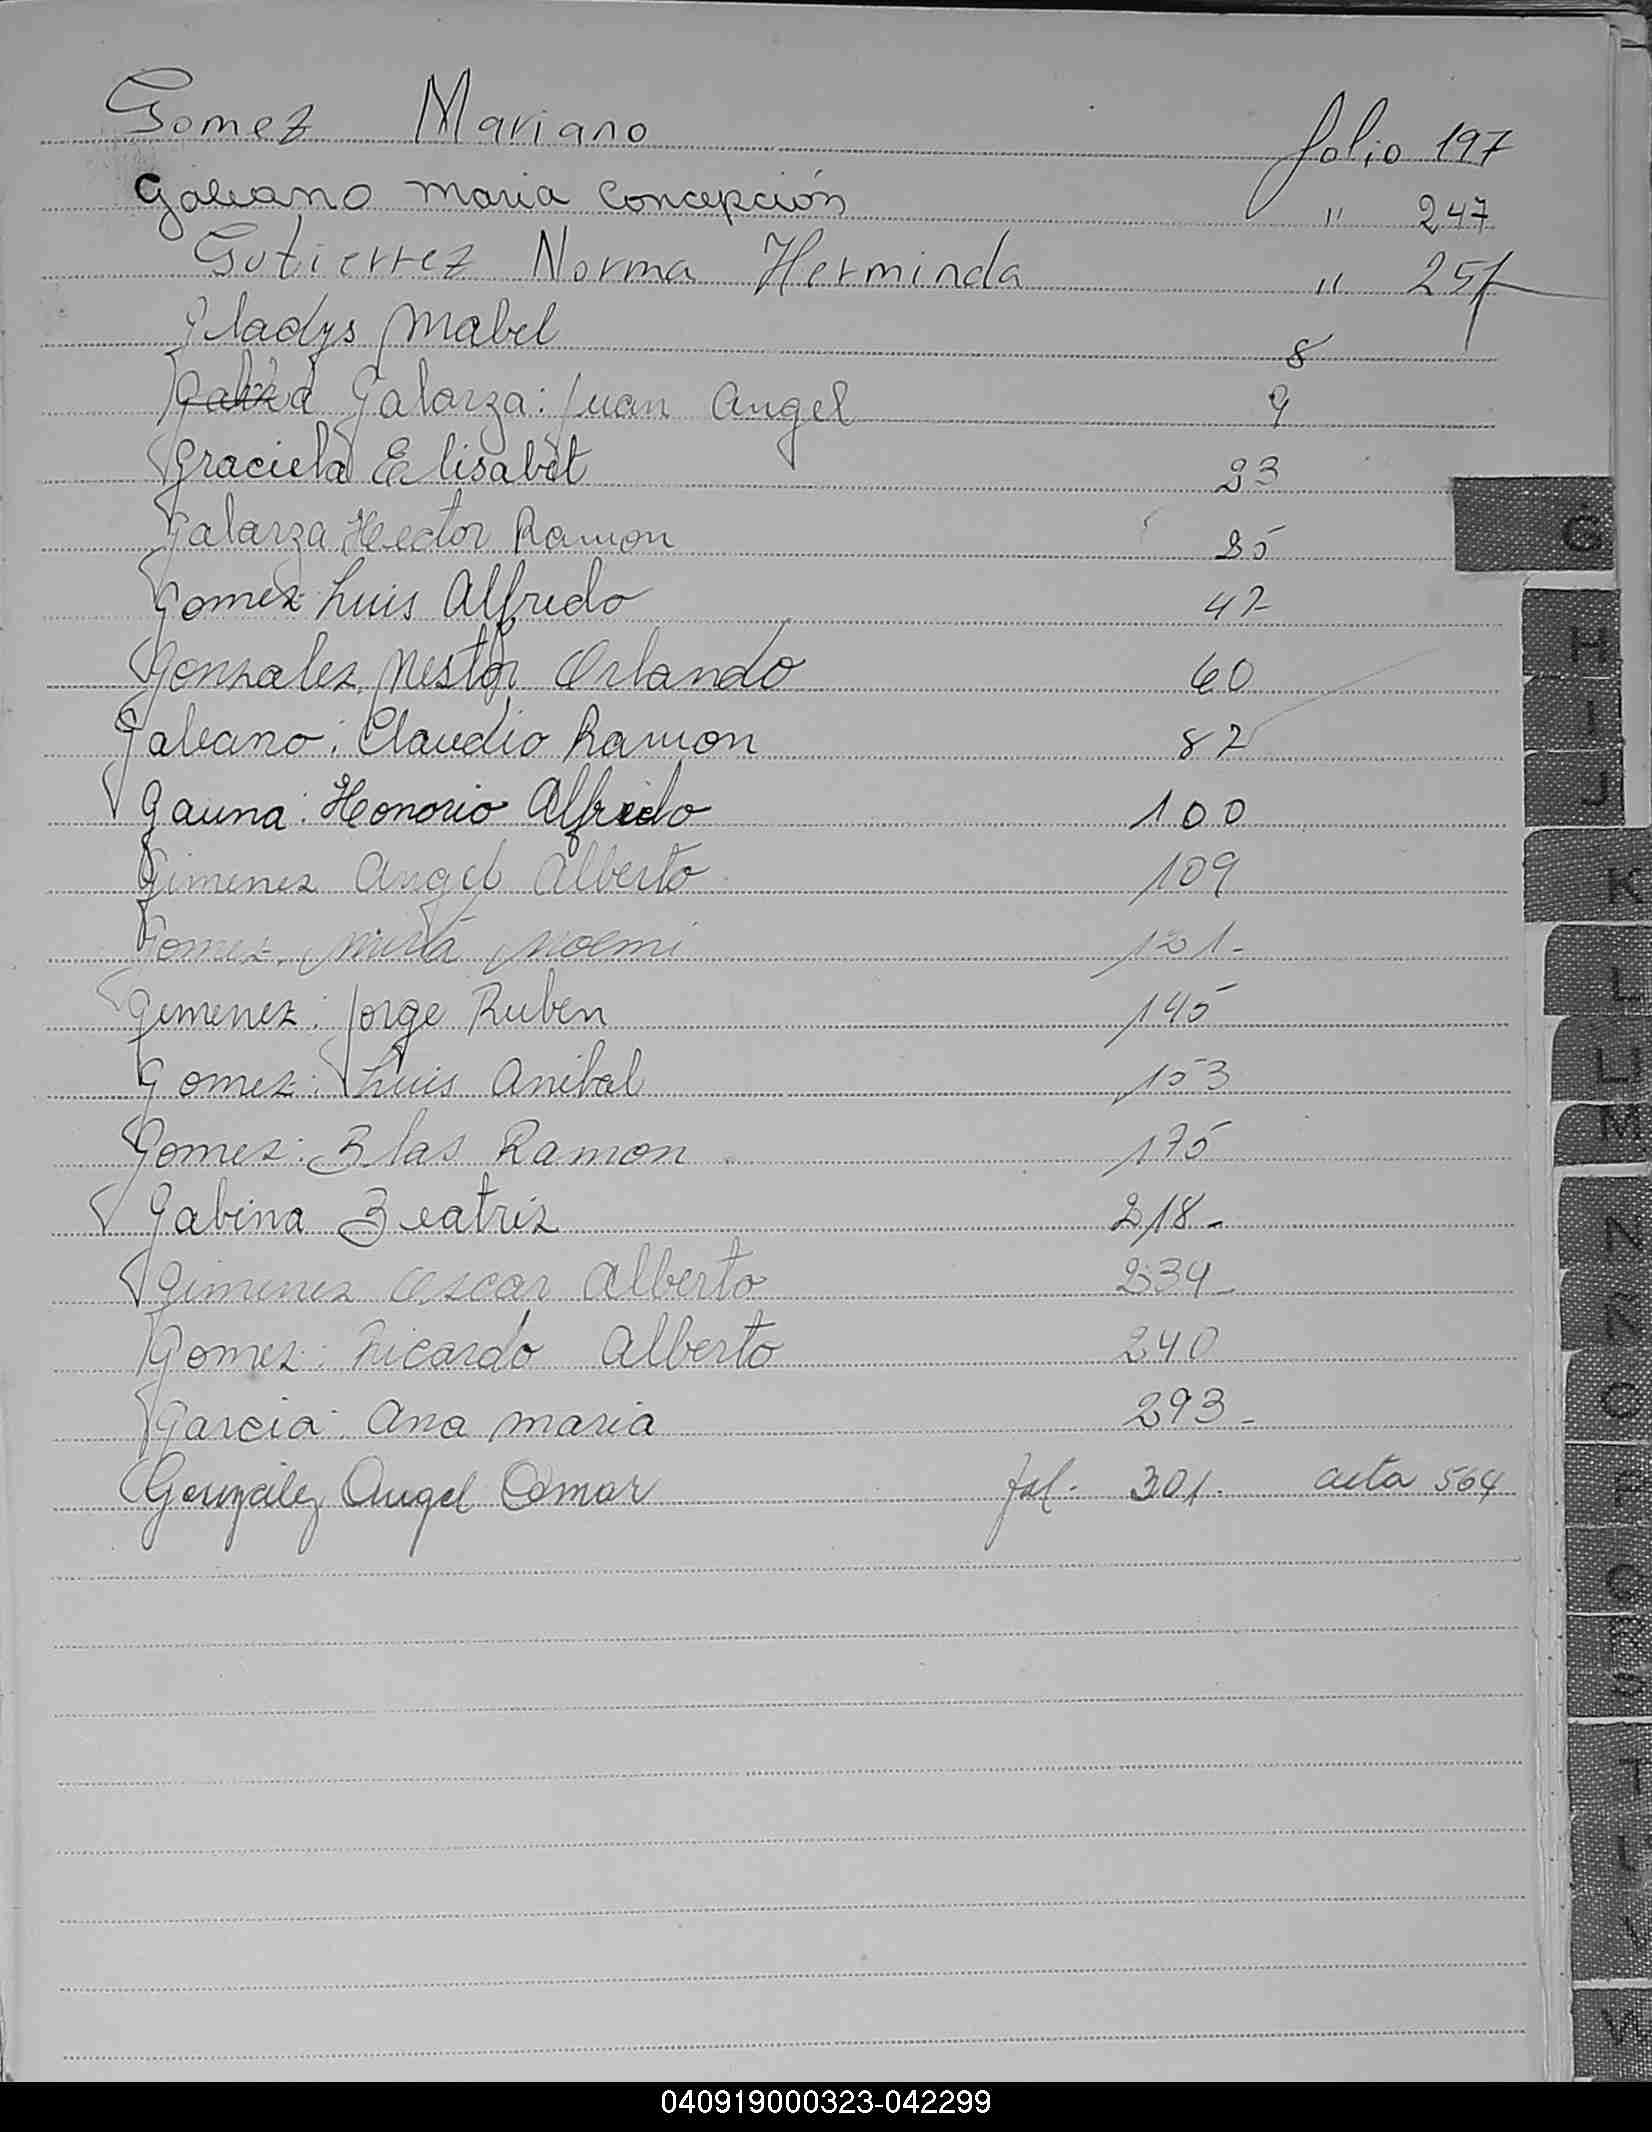 Gomez Mariano folio 197
Galeano Maria Concepción " 247
Gutierrez Norma Herminda " 257
Gladys Mabel 8
Galarza: Juan Angel 9
Graciela Elisabet 23
Galarza Hector Ramon 35
Gomez Luis Alfredo 42
Gonzalez, Nestor Orlando 60
Galeano: Claudio Ramon 82
Gauna: Honorio Alfredo 100
Gimenez Angel Alberto 109
Gomez, Mirta Noemi 121-
Gimenez: Jorge Ruben 145
Gomez: Luis Anibal 153
Gomez: Blas Ramon 175
Gabina Beatriz 218-
Gimenez Oscar Alberto 234-
Gomez: Ricardo Alberto 240
Garcia: Ana Maria 293-
González Angel Omar fol. 301. acta 564
G
H
I
J
K
L
LL
M
N
Ñ
O
P
Q
R
T
U
V
W
040919000323-042299